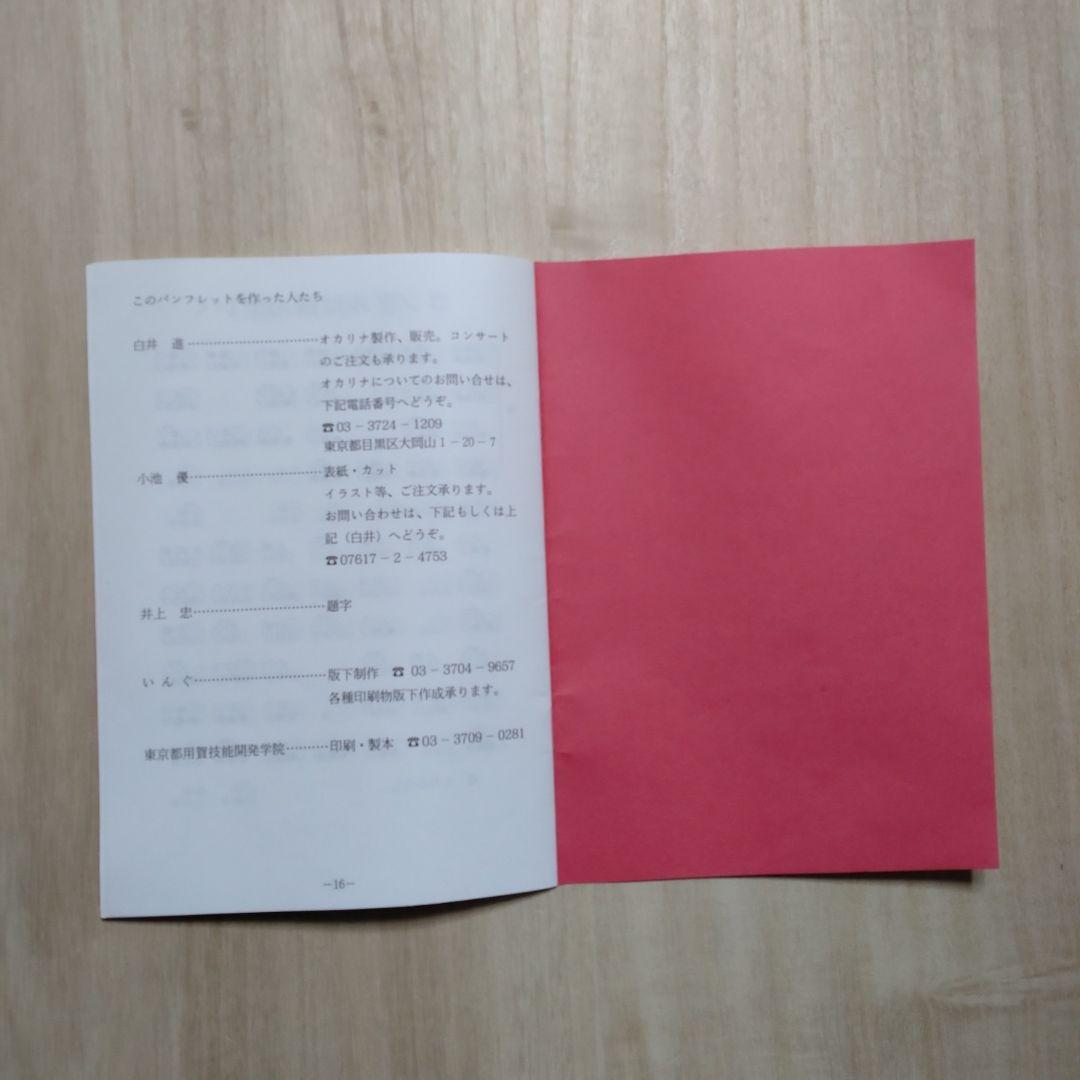 このパンフレットを作った人たち
白井 進……………………………オカリナ製作、販売。コンサート
のご注文も承ります。
オカリナについてのお問い合せは、
下記電話番号へどうぞ。
☎03－3724－1209
東京都目黒区大岡山1－20－7
小池 優……………………………表紙・カット
イラスト等、ご注文承ります。
お問い合わせは、下記もしくは上
記（白井）へどうぞ。
☎07617－2－4753
井上 忠……………………………題字
い ん ぐ……………………………版下制作 ☎ 03－3704－9657
各種印刷物版下作成承ります。
東京都用賀技能開発学院………印刷・製本 ☎03－3709－0281
－16－